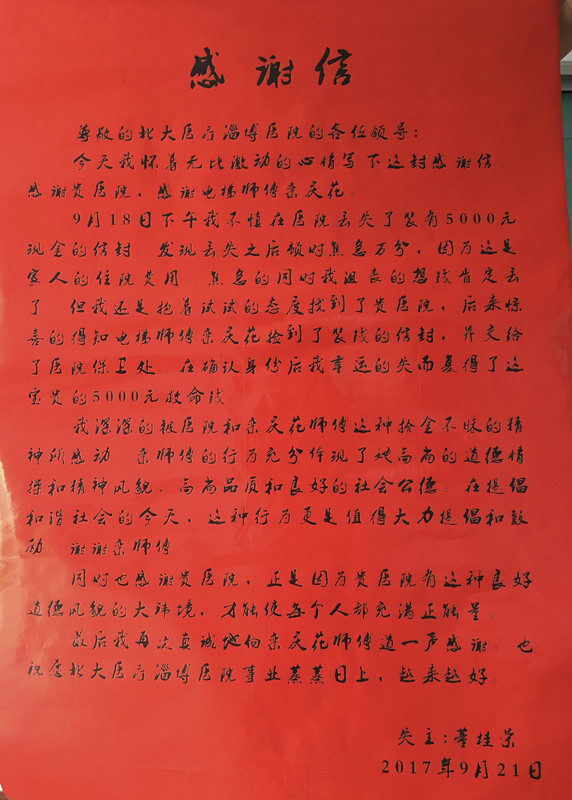 感谢信
尊敬的北大医疗淄博医院的各位领导：
今天我怀着无比激动的心情写下这封感谢信。
感谢贵医院，感谢电梯师傅亲庆花。
9月18日下午我不慎在医院丢失了装有5000元
现金的信封 发现丢失之后顿时焦急万分，因为这是
家人的住院费用。焦急的同时我沮丧的想钱肯定丢
了 但我还是抱着试试的态度找到了贵医院，后来惊
喜的得知电梯师傅亲庆花捡到了装钱的信封，并交给
了医院保卫处 在确认身份后我幸运的失而复得了这
宝贵的5000元救命钱
我深深的被医院和亲庆花师傅这种拾金不昧的精
神所感动 亲师傅的行为充分体现了她高尚的道德情
操和精神风貌，高尚品质和良好的社会公德。在提倡
和谐社会的今天，这种行为更是值得大力提倡和鼓
励 谢谢亲师傅
同时也感谢贵医院，正是因为贵医院有这种良好
道德风貌的大环境，才能使每个人都充满正能量。
最后我再次真诚地向亲庆花师傅道一声感谢。也
祝愿北大医疗淄博医院事业蒸蒸日上，越来越好。
失主：董桂荣
2017年9月21日